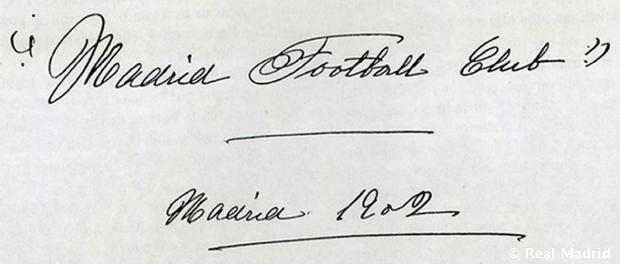 "Madrid Football Club"
Madrid 1902
© Real Madrid